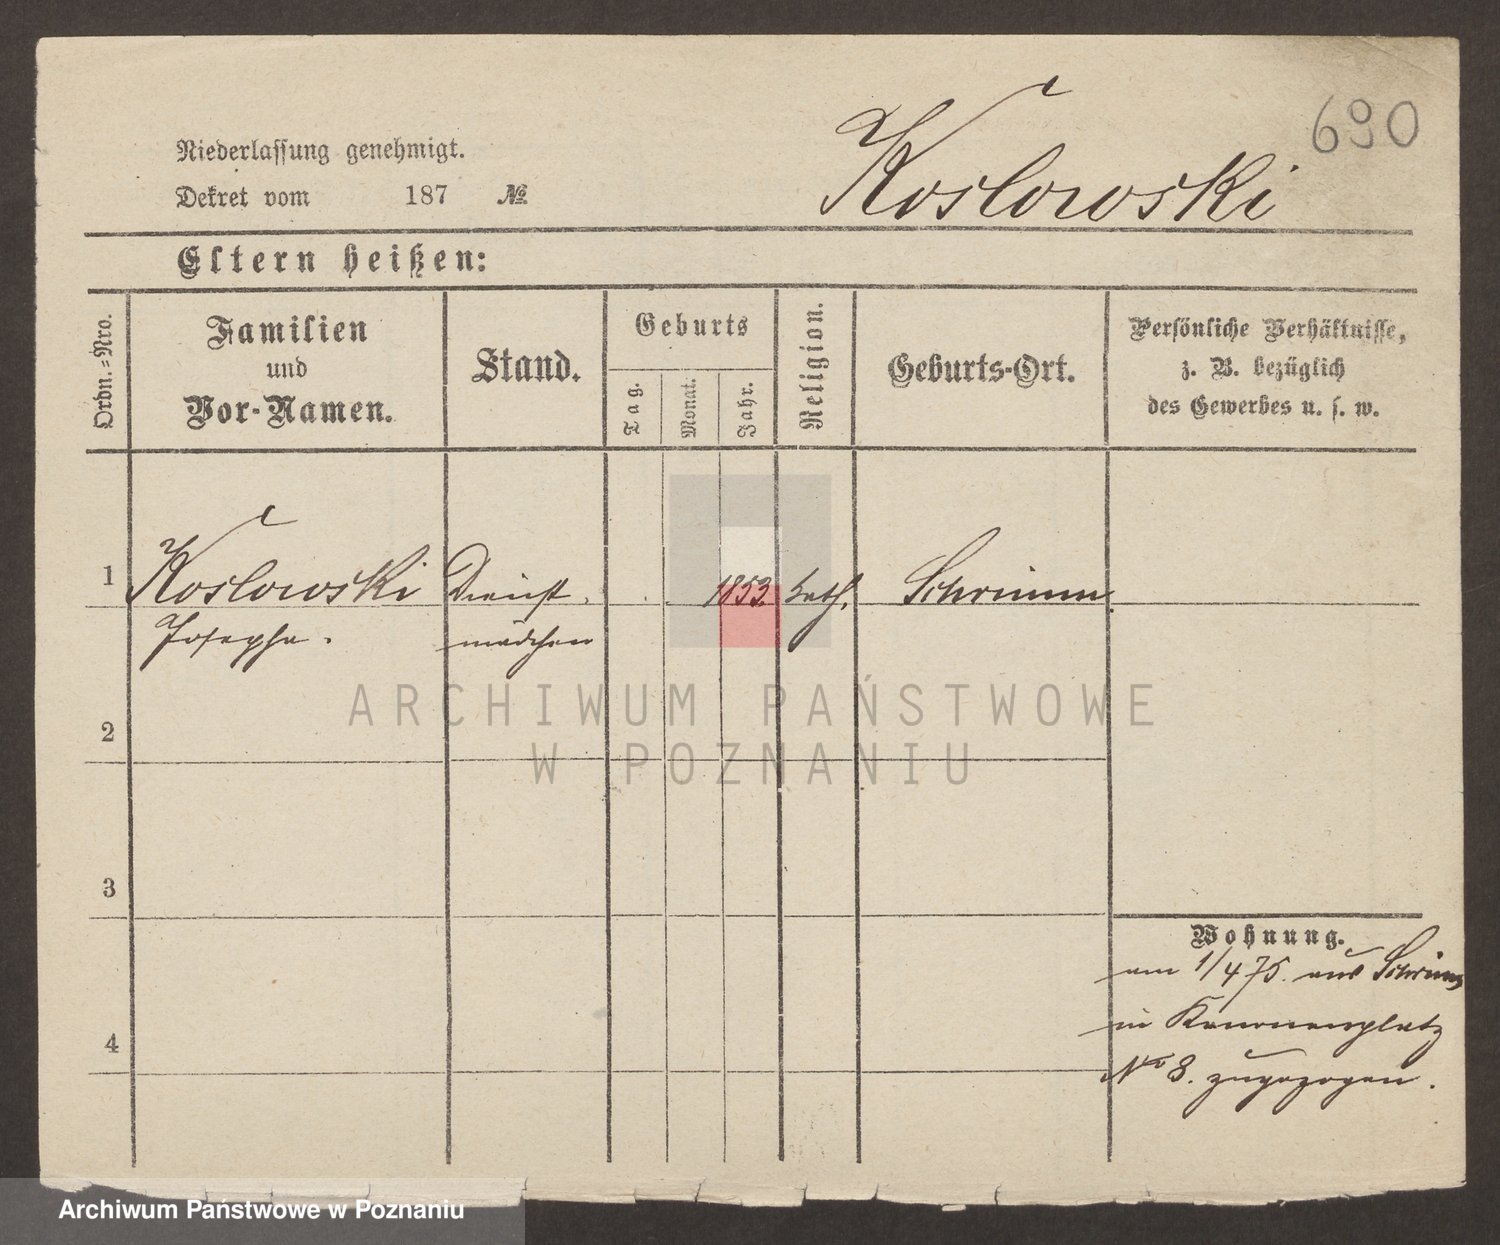 690
Koslowski
Niederlassung genehmigt.
Dekret vom 187 №
Eltern heißen:
Ordn.=Nro.
Familien
und
Vor-Namen.
Stand.
Geburts
Tag.
Monat.
Jahr.
Religion.
Geburts-Ort.
Persönliche Verhältnisse,
z. B. bezüglich
des Gewerbes u. s. w.
1 Koslowski Dienst 1853. kath. Schrimm
Josepha. mädchen
2
3
4
Wohnung.
am 1/4 75. aus Schrimm
in Kanonenplatz
No 8. zugezogen.
ARCHIWUM PAŃSTWOWE
W POZNANIU
Archiwum Państwowe w Poznaniu